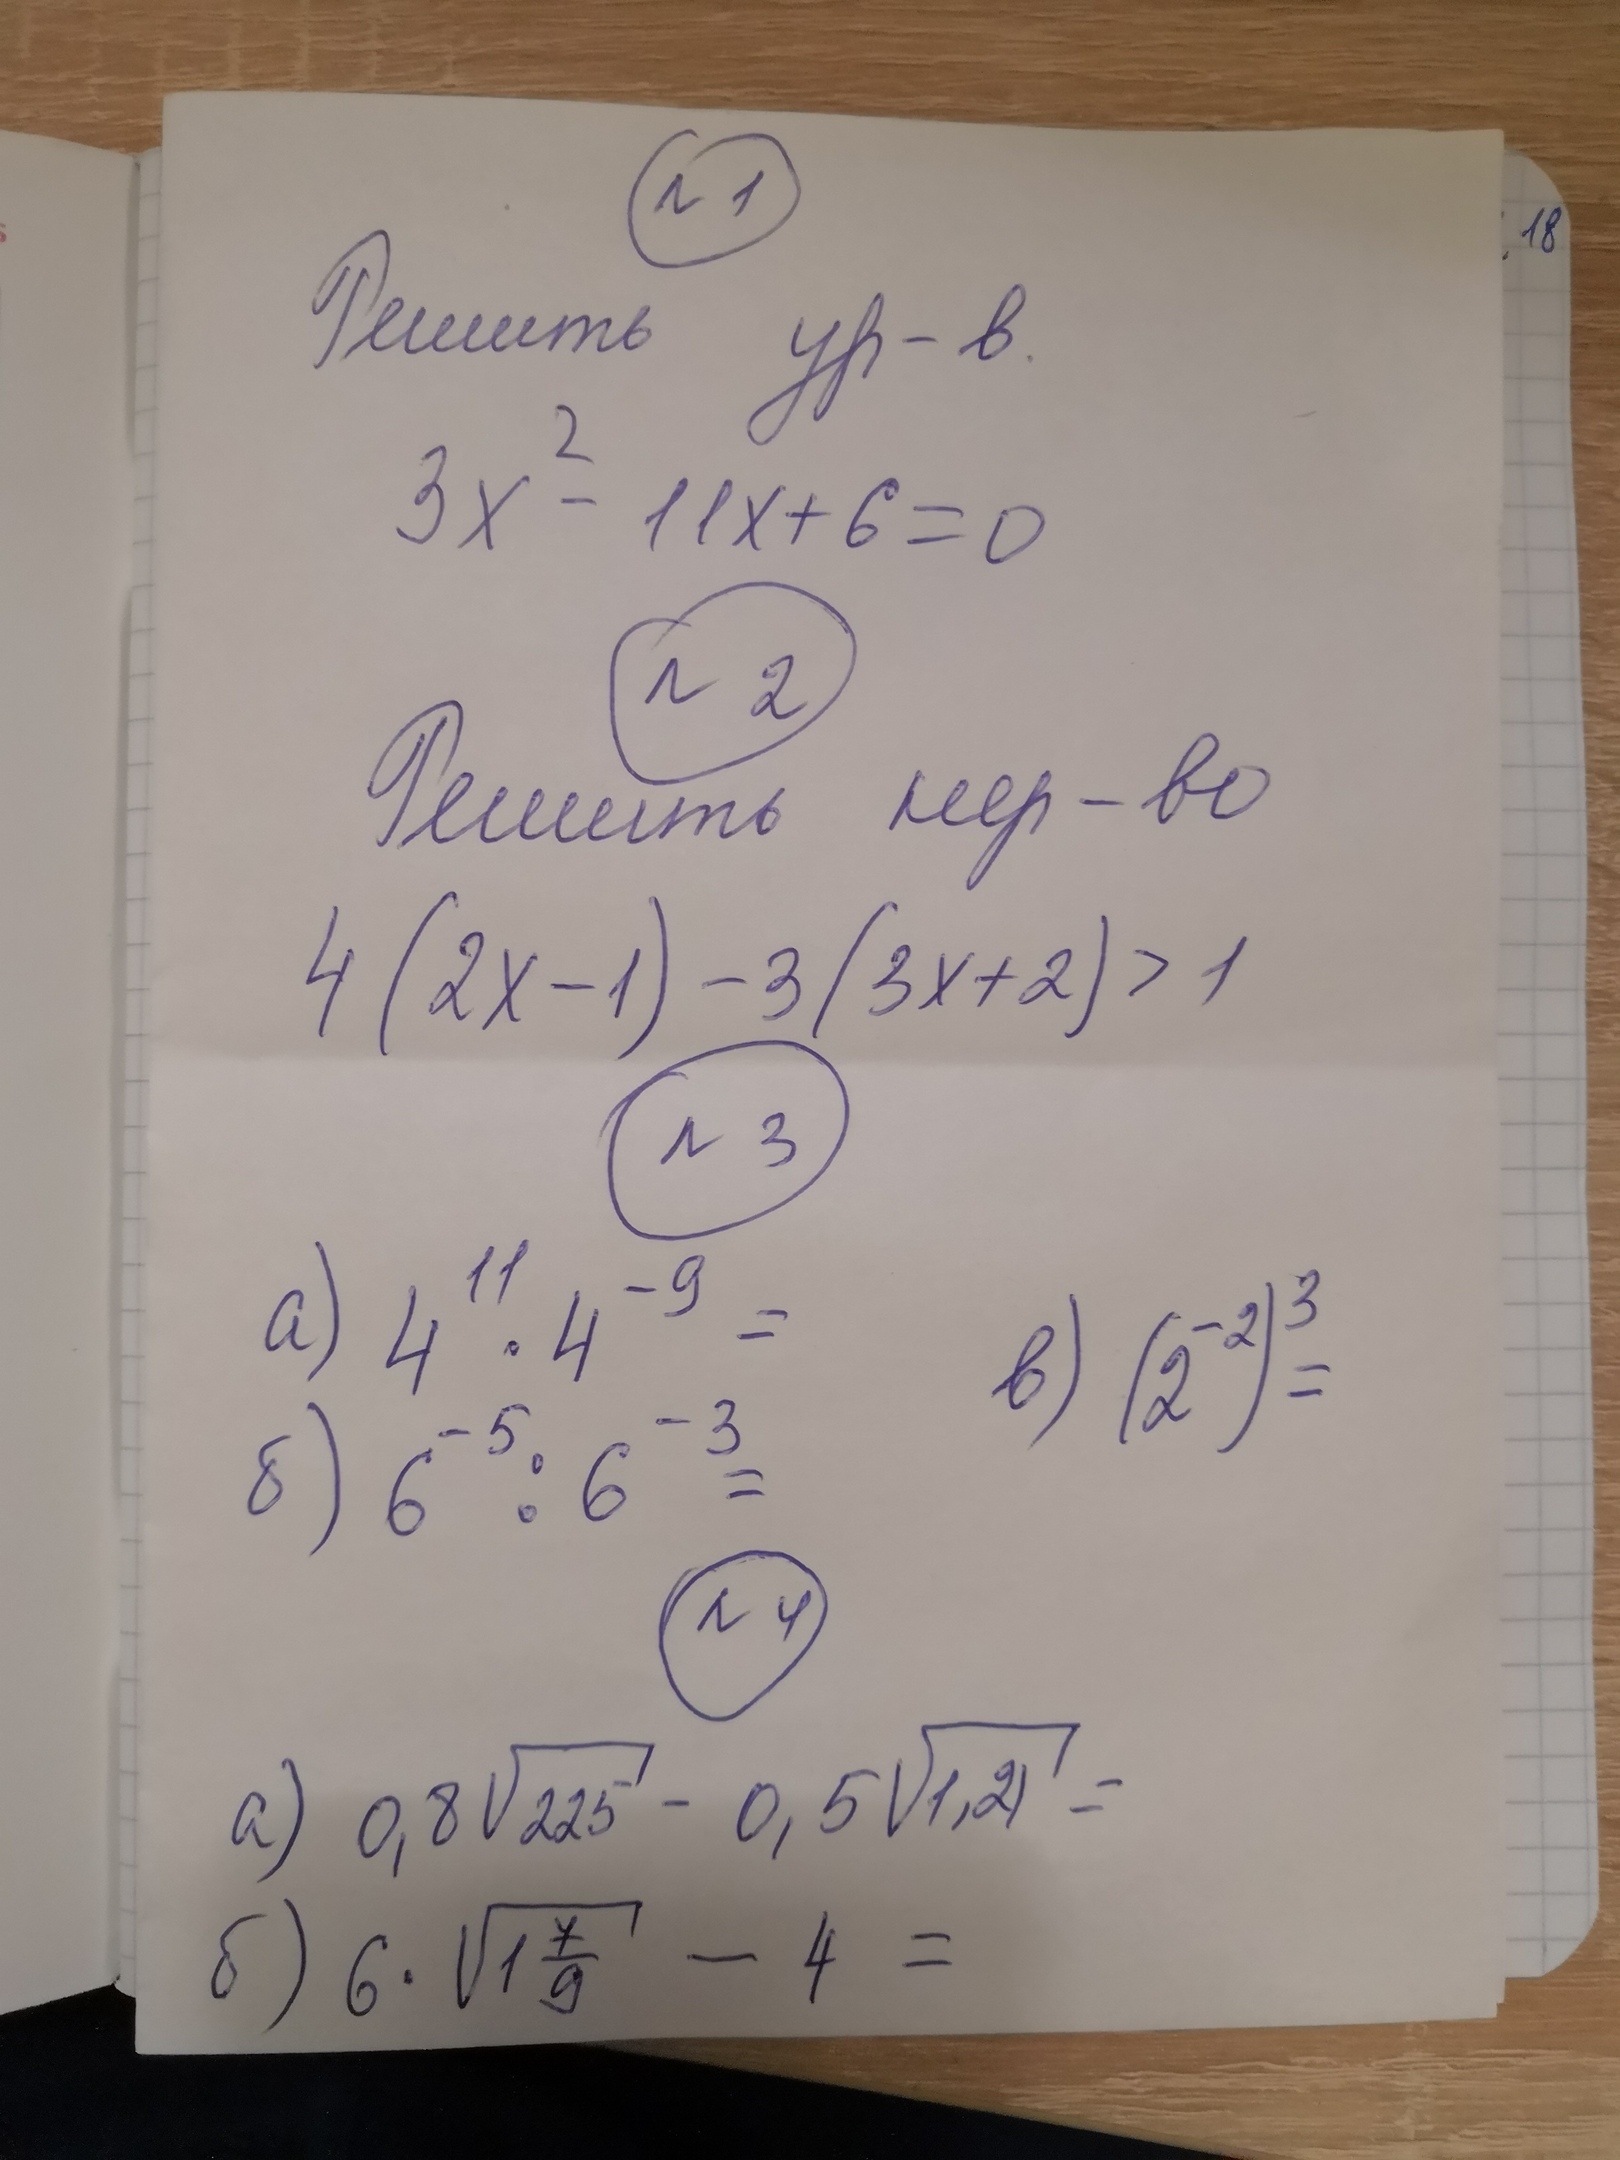 № 1
Решить ур-в.
3x² - 11x + 6 = 0
№ 2
Решить нер-во
4(2x-1) - 3(3x+2) > 1
№ 3
а) 4¹¹ · 4⁻⁹ =
в) (2⁻²)³ =
б) 6⁻⁵ : 6⁻³ =
№ 4
а) 0,8√225 - 0,5√1,21 =
б) 6 · √1 7/9 - 4 =
18